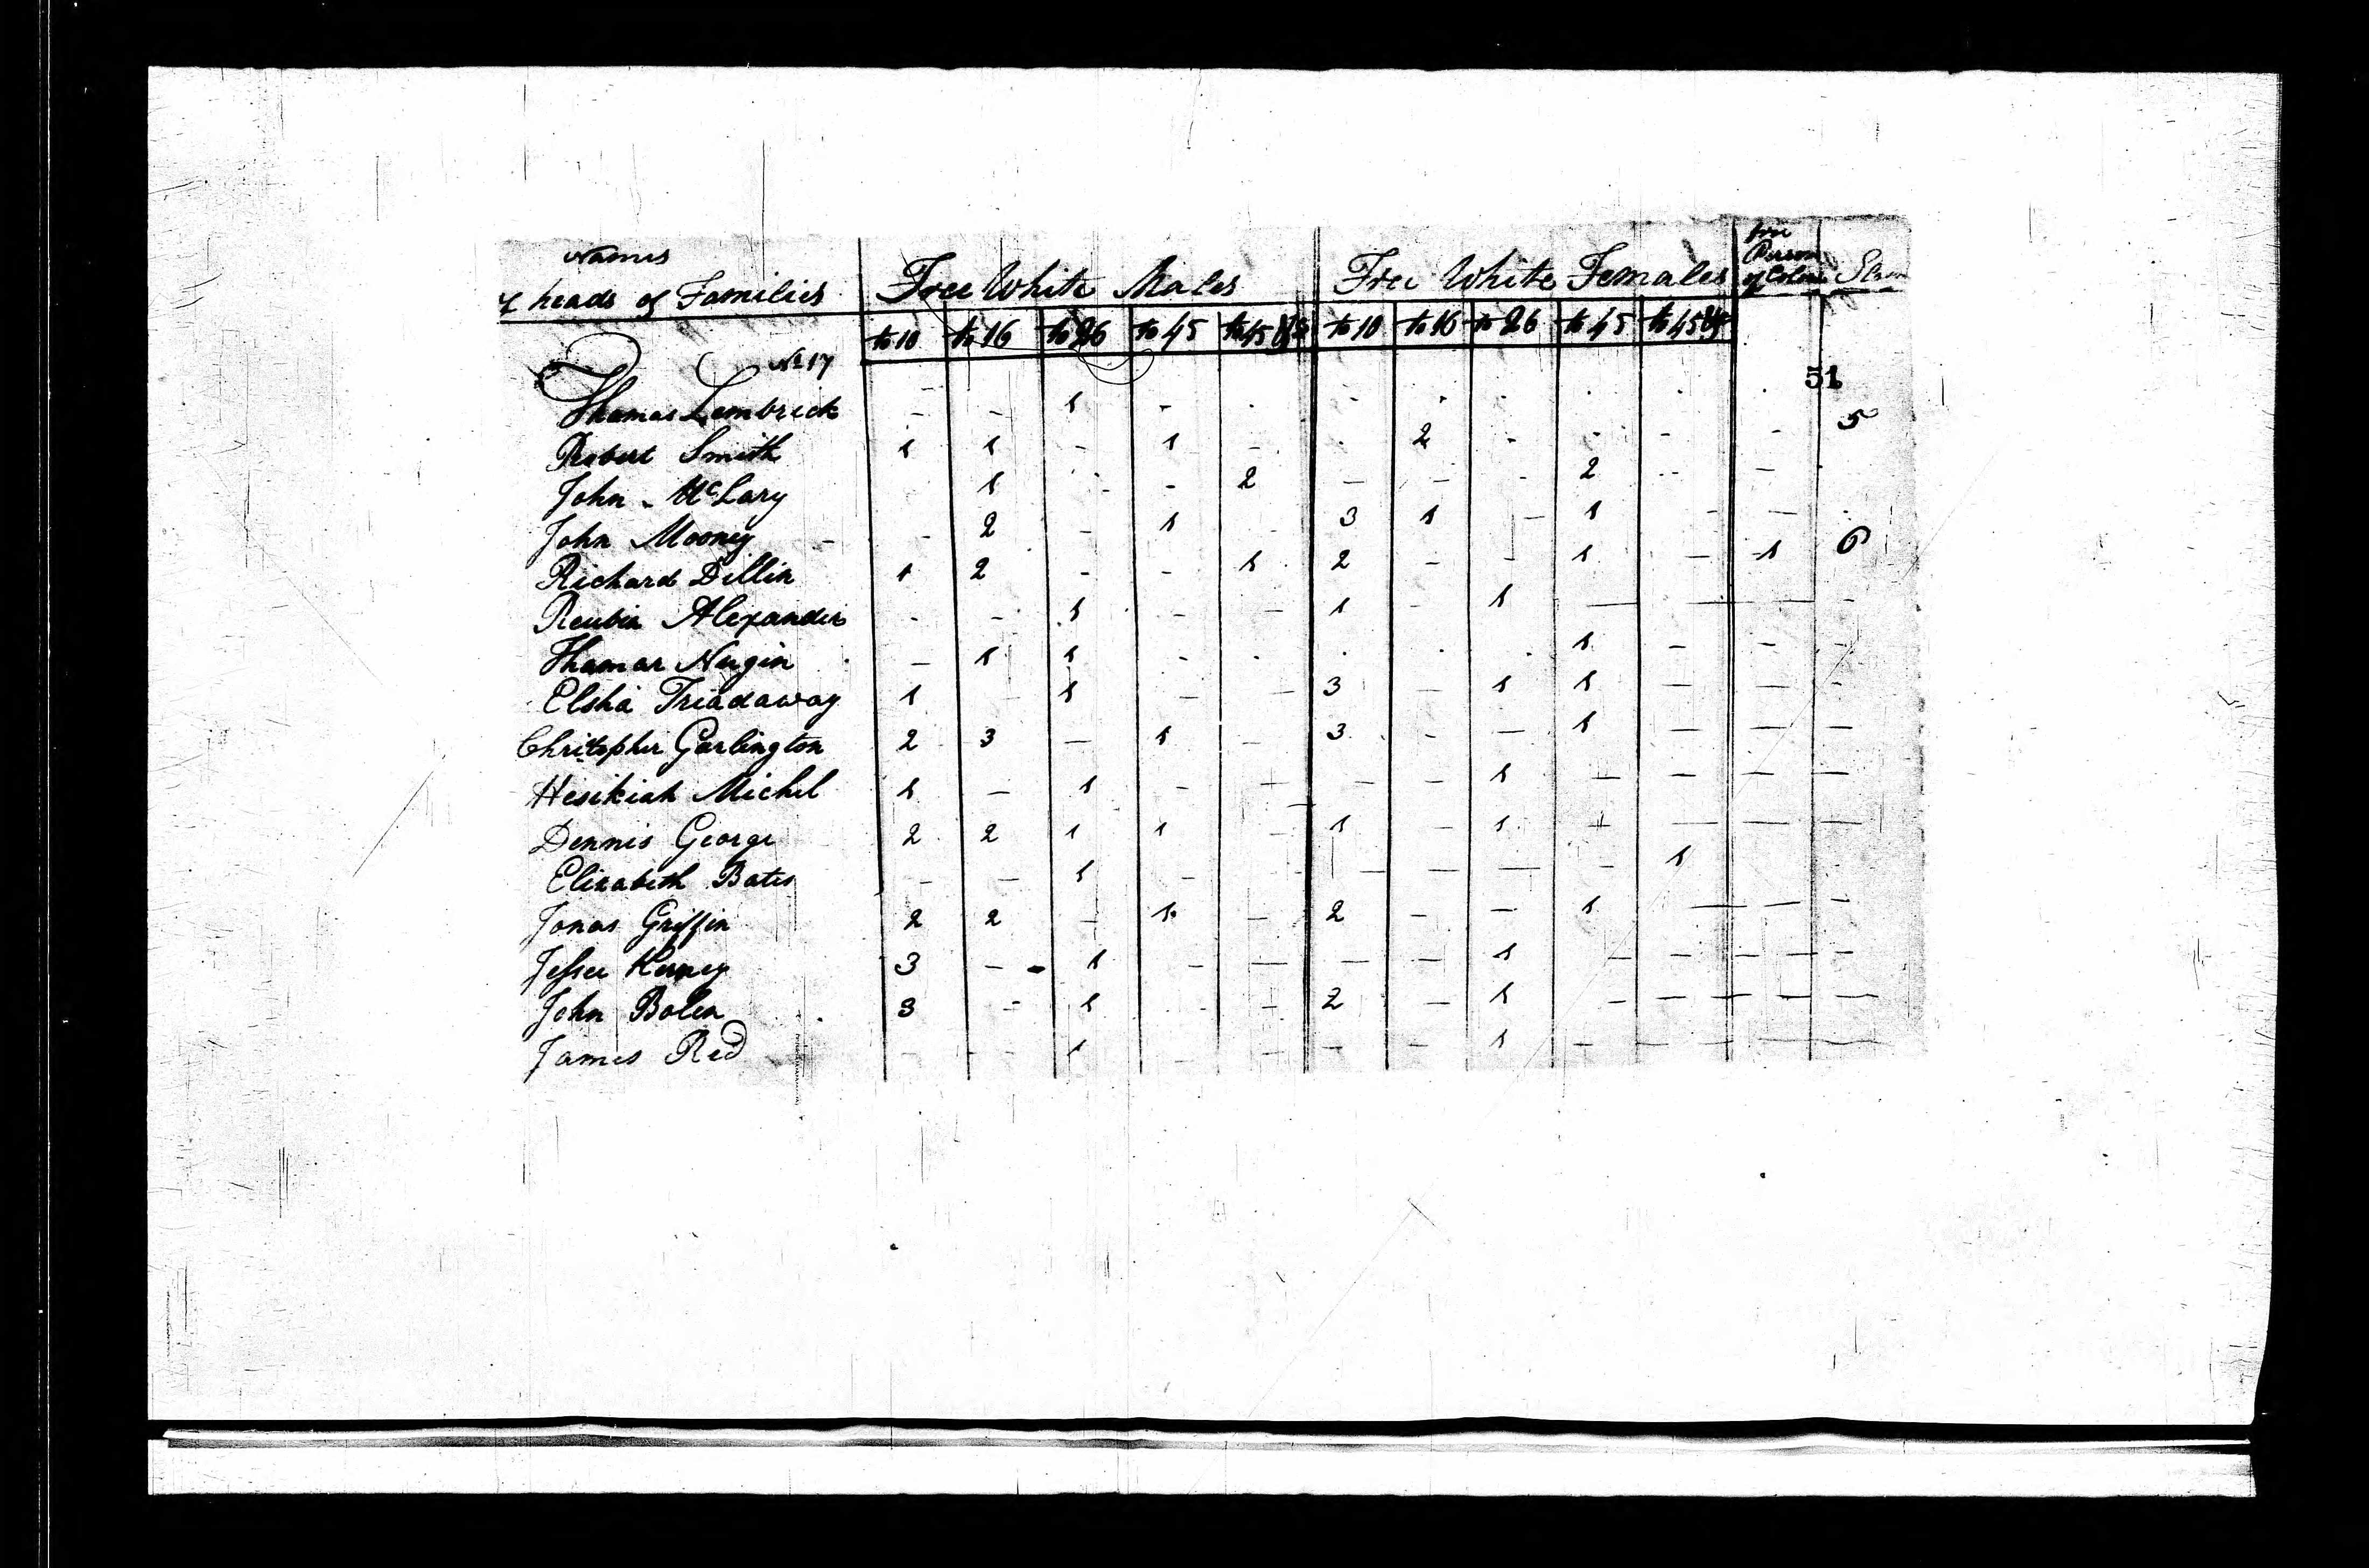 Names free
of heads of Families Free White Males Free White Females Person of Color Slaves
to 10 to 16 to 26 to 45 to 45 & to 10 to 16 to 26 to 45 to 45 &
No 17 51
Thomas Lambrick - - 1 - - - - - - - - 5
Robert Smith 1 1 - 1 - - 2 - - - -
John McLary - 1 - - 2 - - - 2 - -
John Mooney - 2 - 1 - 3 1 - 1 - -
Richard Dillin 1 2 - - 1 2 - - 1 - 1 6
Reubin Alexander - - 1 - - 1 - 1 - - - -
Thomas Nugin - 1 1 - - - - - 1 - - -
Elsha Triadaway 1 - 1 - - 3 - 1 1 - - -
Christopher Garlington 2 3 - 1 - 3 - - 1 - - -
Hesikiah Michel 1 - 1 - - - - 1 - - - -
Dennis George 2 2 1 1 - 1 - 1 - - - -
Elizabeth Bates - - 1 - - - - - - 1
Jonas Griffin 2 2 - 1 - 2 - - 1 - - -
Jesse Kerney 3 - 1 - - - - 1 - - - -
John Bolen 3 - 1 - - 2 - 1 - - - -
James Red - - 1 - - - - 1 - - - -